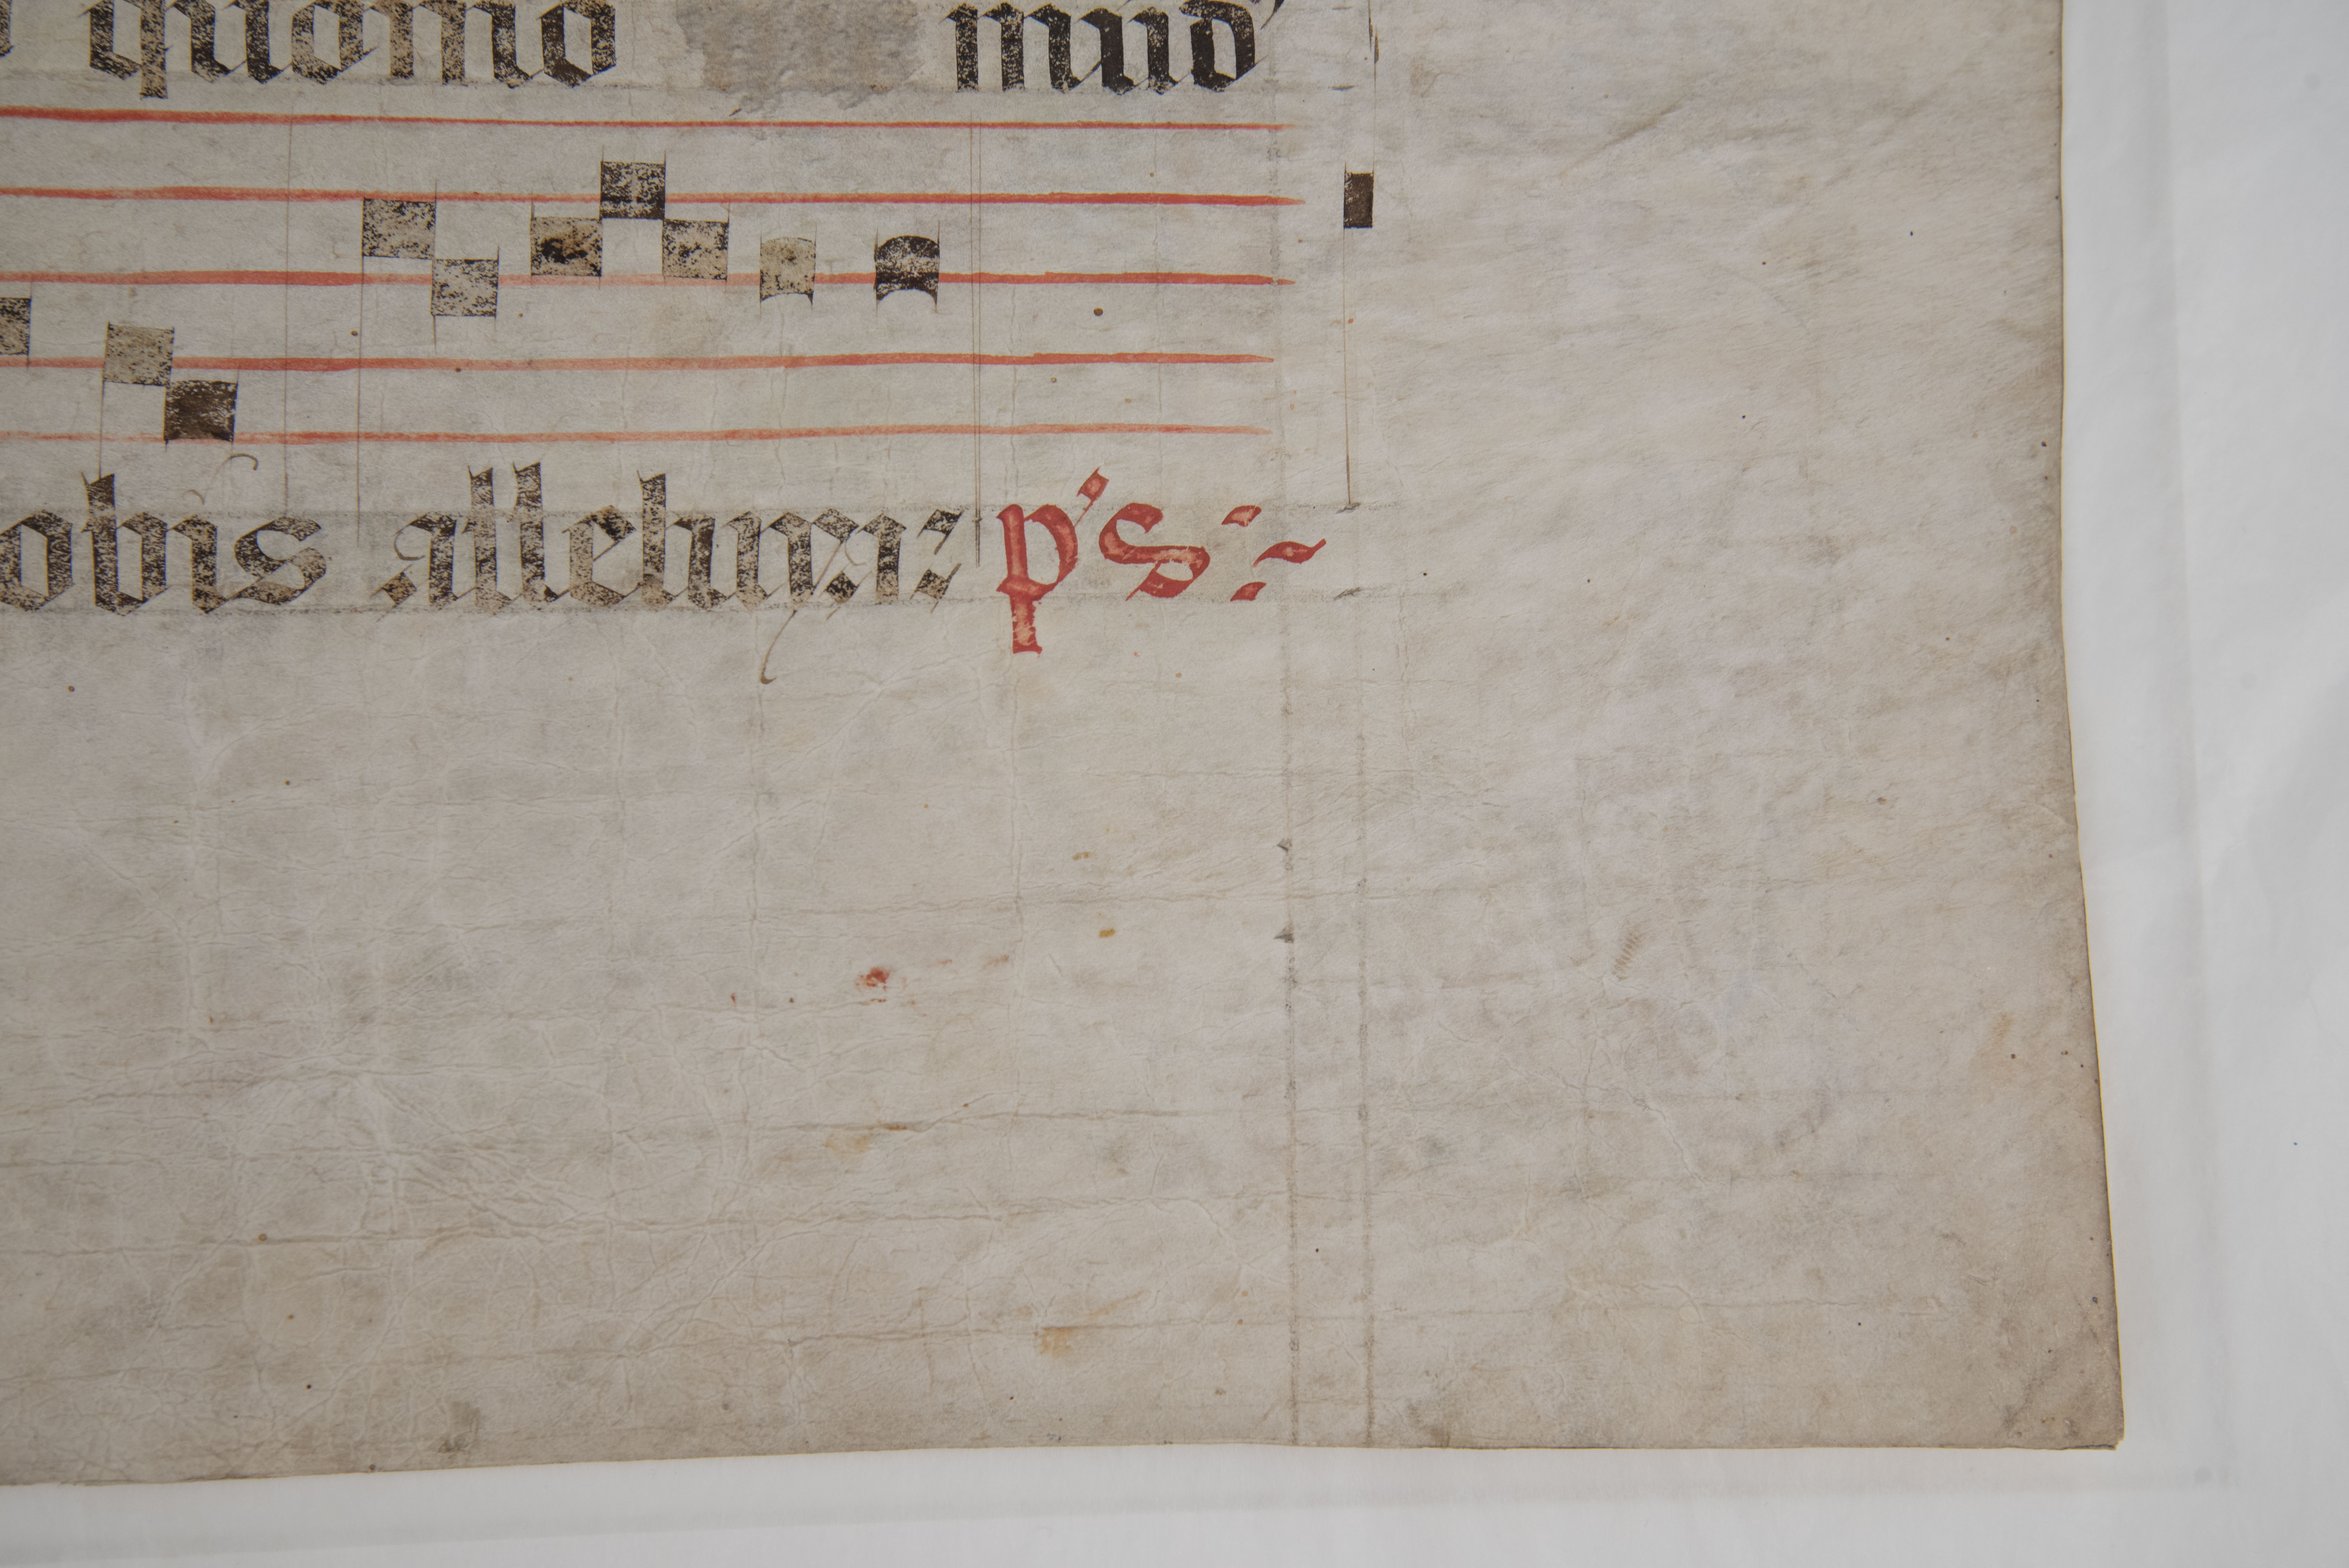 quomo mūd'
obis alleluya: ps:~